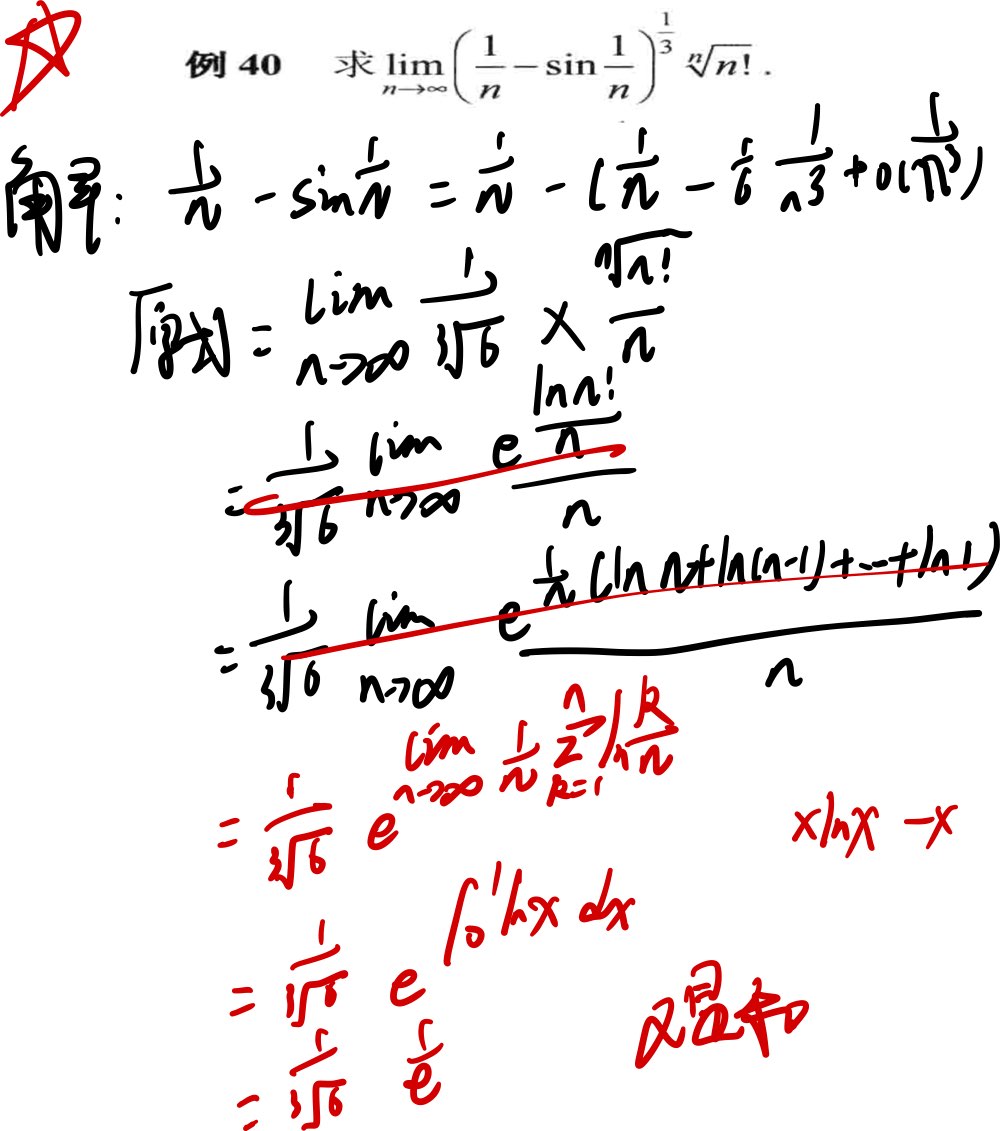 例 40 求 lim_{n→∞} (1/n - sin 1/n)^{1/3} ⁿ√n! .
解: 1/n - sin 1/n = 1/n - (1/n - 1/6 1/n³ + o(1/n³)
原式 = lim_{n→∞} 1/³√6 × ⁿ√n!/n
= 1/³√6 lim_{n→∞} e^{ln n!/n}/n
= 1/³√6 lim_{n→∞} e^{1/n (ln n + ln(n-1) + ... + ln 1)}/n
= 1/³√6 e^{lim_{n→∞} 1/n Σ_{k=1}^{n} ln k/n}
xlnx - x
= 1/³√6 e^{∫₀¹ lnx dx}
= 1/³√6 1/e